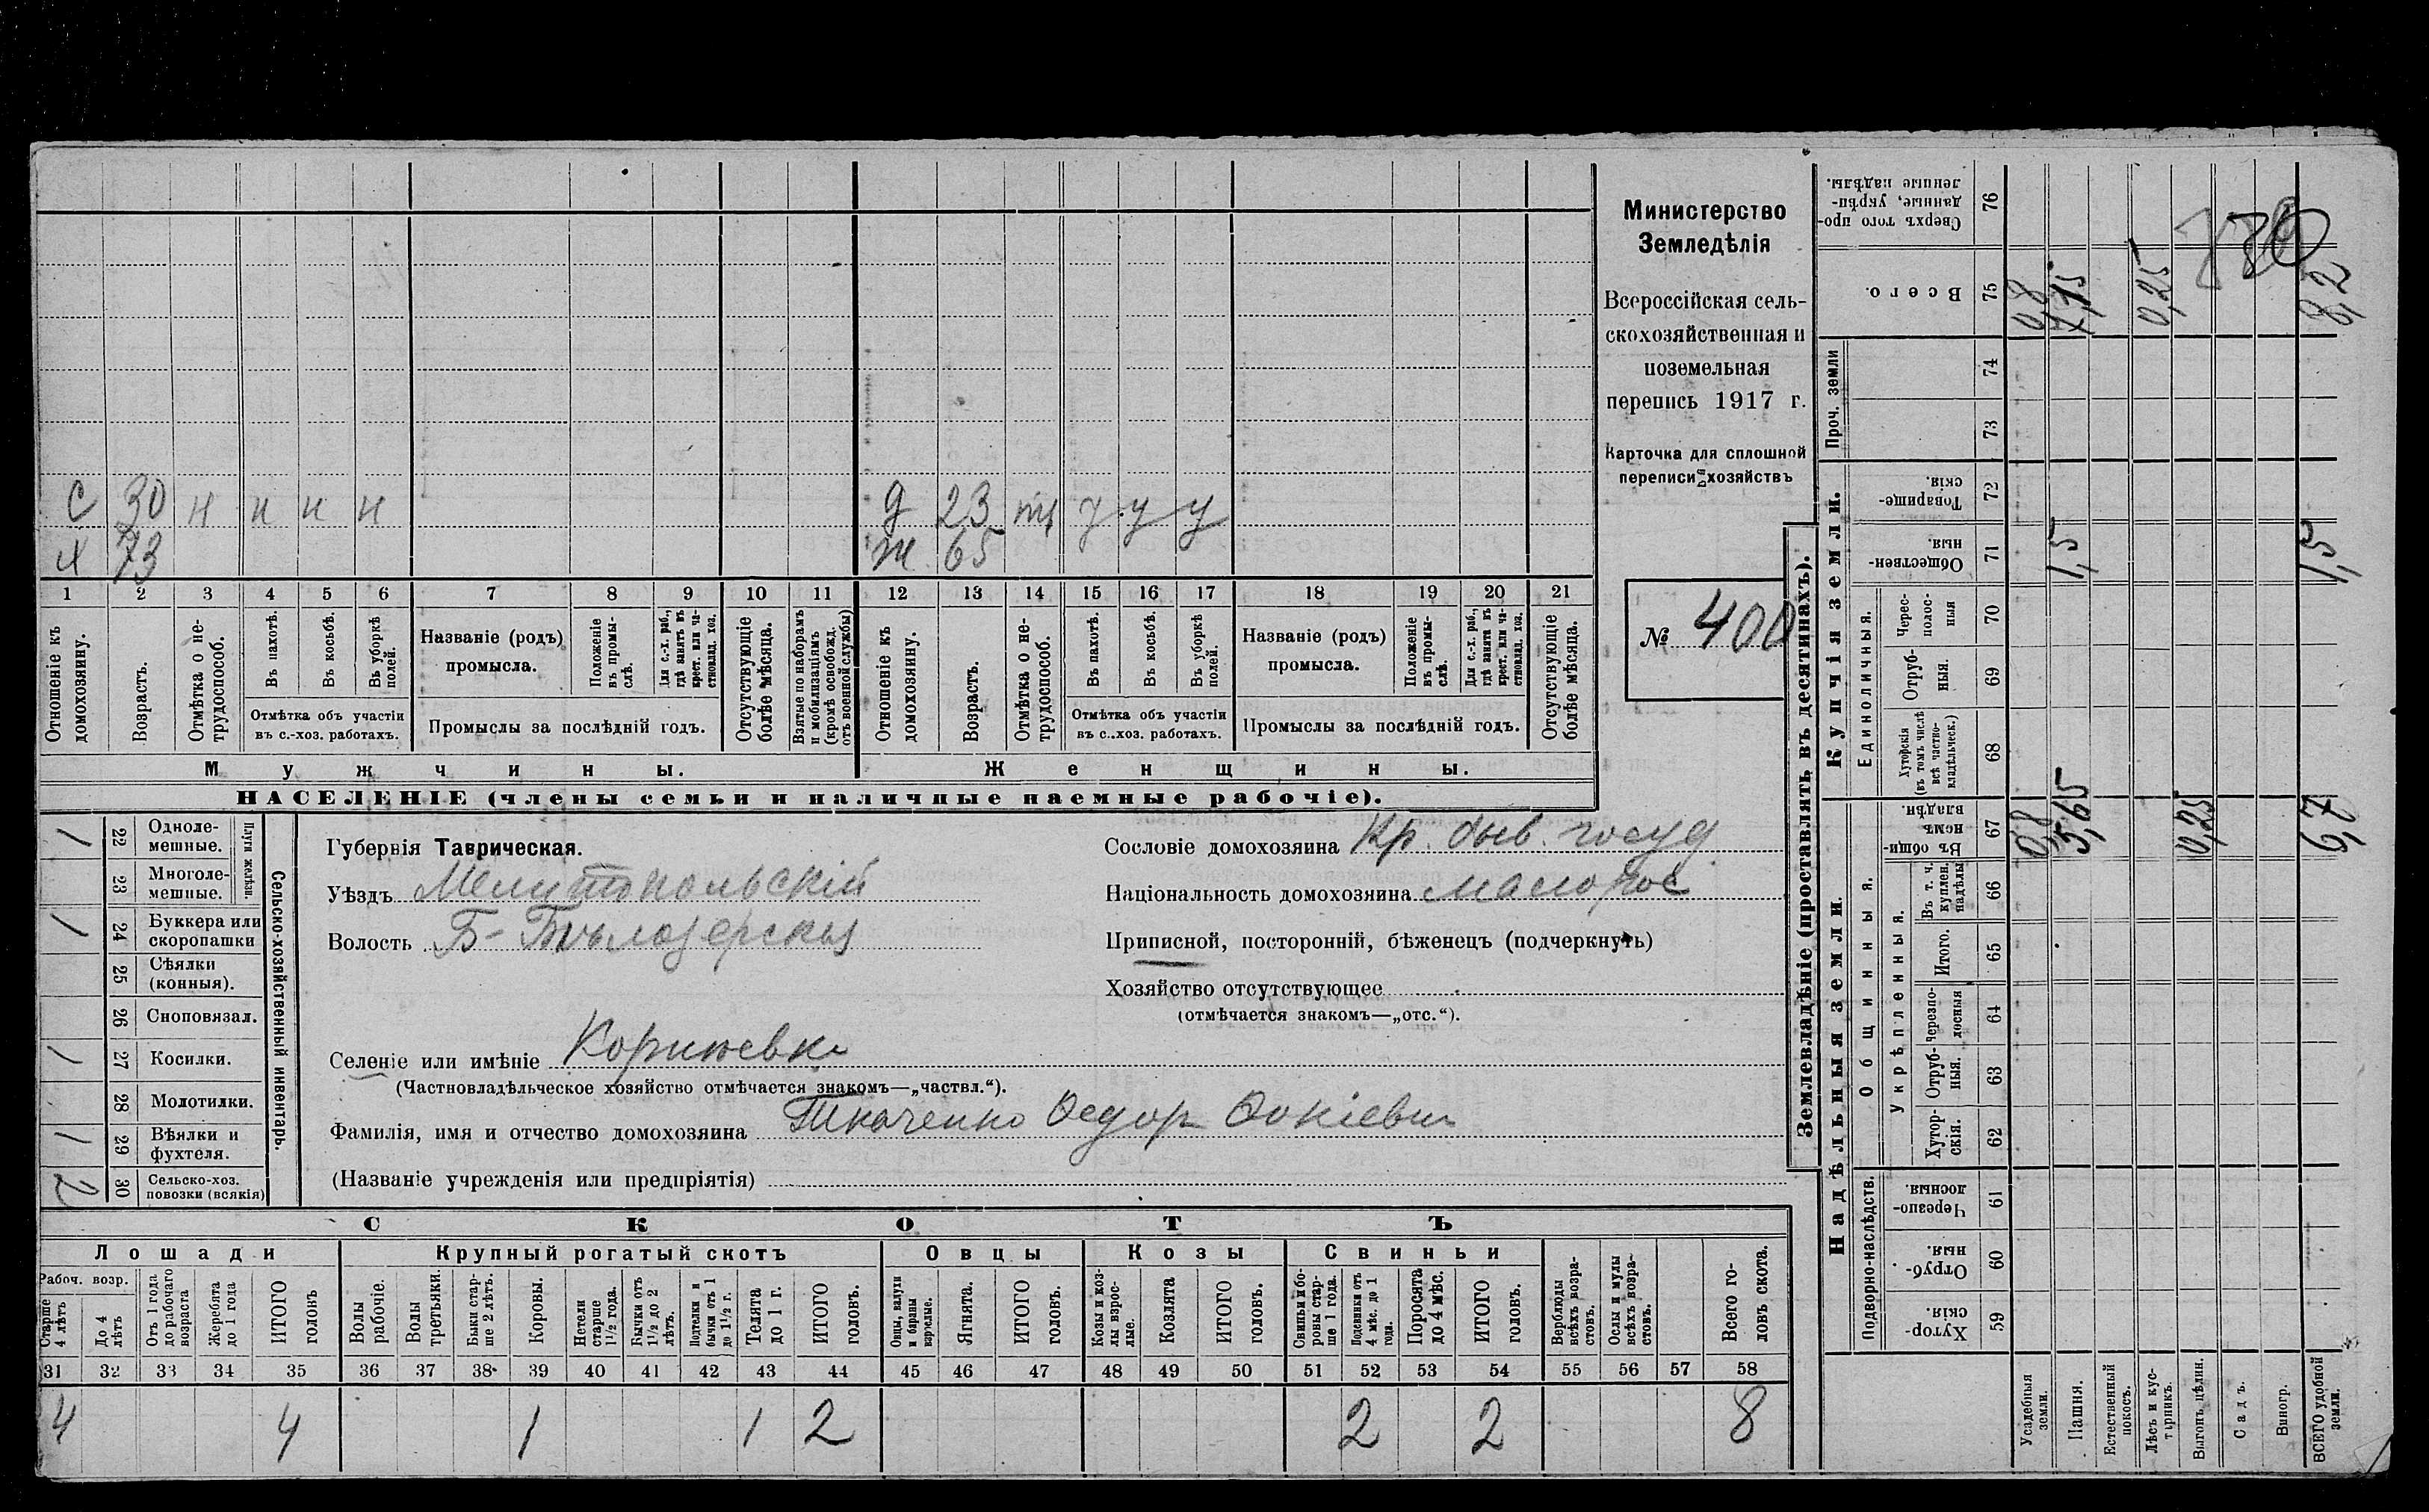 Министерство
Земледѣлія
Всероссійская сель-
скохозяйственная и
поземельная
перепись 1917 г.
Карточка для сплошной
переписи хозяйствъ
№ 400
С 30 н н н н
х 73
д 23 у у у
ж 65
1 2 3 4 5 6 7 8 9 10 11 12 13 14 15 16 17 18 19 20 21
Отношеніе къ домохозяину.
Возрастъ.
Отмѣтка о не-трудоспособ.
Въ пахотѣ.
Въ косьбѣ.
Въ уборкѣ полей.
Отмѣтка объ участіи
въ с.-хоз. работахъ.
Названіе (родъ)
промысла.
Положеніе въ промы-слѣ.
Для с.-х. раб., гдѣ занятъ въ крест. или ча-стновлад. хоз.
Промыслы за послѣдній годъ.
Отсутствующіе болѣе мѣсяца.
Взятые по наборамъ и мобилизаціямъ (кромѣ освобожд. отъ военной службы)
Отношеніе къ домохозяину.
Возрастъ.
Отмѣтка о не-трудоспособ.
Въ пахотѣ.
Въ косьбѣ.
Въ уборкѣ полей.
Отмѣтка объ участіи
въ с.-хоз. работахъ.
Названіе (родъ)
промысла.
Положеніе въ промы-слѣ.
Для с.-х. раб., гдѣ занята въ крест. или ча-стновлад. хоз.
Промыслы за послѣдній годъ.
Отсутствующіе болѣе мѣсяца.
Мужчины.
Женщины.
НАСЕЛЕНІЕ (члены семьи и наличные наемные рабочіе).
Сельско-хозяйственный инвентарь.
Плуги желѣзн.
1 22 Одноле-мешные.
23 Многоле-мешные.
1 24 Буккера или скоропашки
25 Сѣялки (конныя).
26 Сноповязал.
1 27 Косилки.
28 Молотилки.
1 29 Вѣялки и фухтеля.
2 30 Сельско-хоз. повозки (всякія)
Губернія Таврическая.
Уѣздъ Мелитопольскій
Волость Б-Бѣлозерская
Селеніе или имѣніе
(Частновладѣльческое хозяйство отмѣчается знакомъ—„частвл.“).
Фамилія, имя и отчество домохозяина Ткаченко Федор Фокіевич
(Названіе учрежденія или предпріятія)
Сословіе домохозяина Кр. быв. госуд
Національность домохозяина малорос
Приписной, посторонній, бѣженецъ (подчеркнуть)
Хозяйство отсутствующее
(отмѣчается знакомъ—„отс.“).
СКОТЪ
Лошади
Крупный рогатый скотъ
Овцы
Козы
Свиньи
Рабоч. возр.
Старше 4 лѣтъ
До 4 лѣтъ
Отъ 1 года до рабочаго возраста
Жеребята до 1 года
ИТОГО головъ
Волы рабочіе.
Волы третьяки.
Быки стар-ше 2 лѣтъ.
Коровы.
Нетели старше 1½ года.
Бычки отъ 1½ до 2 лѣтъ.
Подтелки и бычки отъ 1 до 1½ г.
Телята до 1 г.
ИТОГО головъ.
Овцы, валухи и бараны взрослые.
Ягнята.
ИТОГО головъ.
Козы и коз-лы взрос-лые.
Козлята
ИТОГО головъ.
Свиньи и бо-ровы стар-ше 1 года.
Подсвинки отъ 4 мѣс. до 1 года.
Поросята до 4 мѣс.
ИТОГО головъ.
Верблюды всѣхъ возра-стовъ.
Ослы и мулы всѣхъ возра-стовъ.
Всего го-ловъ скота.
31 32 33 34 35 36 37 38 39 40 41 42 43 44 45 46 47 48 49 50 51 52 53 54 55 56 57 58
4 4 1 1 2 2 2 8
Землевладѣніе (проставлять въ десятинахъ).
Надѣльныя земли.
Купчія земли.
Проч. земли
Подворно-наслѣдств.
Общинныя.
Укрѣпленныя.
Единоличныя.
Хутор-скія. 59
Отруб-ныя. 60
Черезпо-лосныя. 61
Хутор-скія. 62
Отруб-ныя. 63
Черезпо-лосныя 64
Итого. 65
Въ т. ч. куплен. надѣлы 66
Въ общин-номъ владѣн. 67
Хуторскія (въ томъ числѣ всѣ частно-владѣльческ.) 68
Отруб-ныя. 69
Черес-полос-ныя 70
Обществен-ныя. 71
Товарище-скія. 72
73
74
Всего. 75
Сверхъ того про-данные, укрѣп-ленные надѣлы. 76
Усадебныя земли. 0,8 0,8
Пашня. 5,65 1,5 7,15
Естественный покосъ.
Лѣсъ и кус-тарникъ.
Выгонъ, цѣлин. 0,25 0,25
Садъ.
Виногр.
ВСЕГО удобной земли. 6,7 1,5 8,2